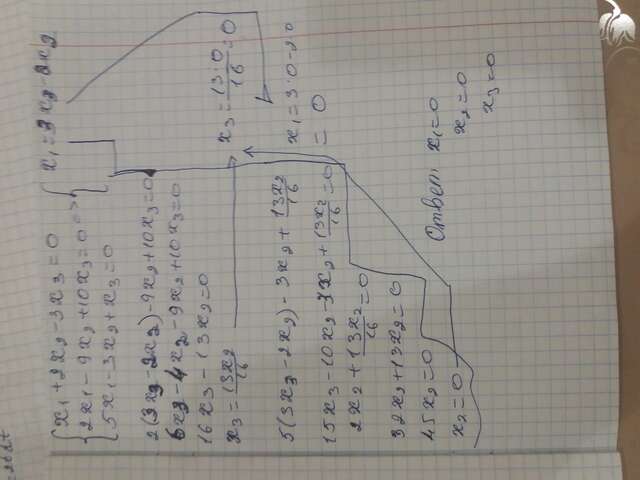 x₁ + 2x₂ - 3x₃ = 0
2x₁ - 9x₂ + 10x₃ = 0 =>
5x₁ - 3x₂ + x₃ = 0
x₁ = 3x₃ - 2x₂
2(3x₃ - 2x₂) - 9x₂ + 10x₃ = 0
6x₃ - 4x₂ - 9x₂ + 10x₃ = 0
16x₃ - 13x₂ = 0
x₃ = 13x₂/16
x₃ = 13·0/16 = 0
5(3x₃ - 2x₂) - 3x₂ + 13x₂/16
x₁ = 3·0 - 2·0
= 0
15x₃ - 10x₂ - 3x₂ + 13x₂/16 = 0
2x₂ + 13x₂/16 = 0
32x₂ + 13x₂ = 0
45x₂ = 0
x₂ = 0
Ответ x₁ = 0
x₂ = 0
x₃ = 0